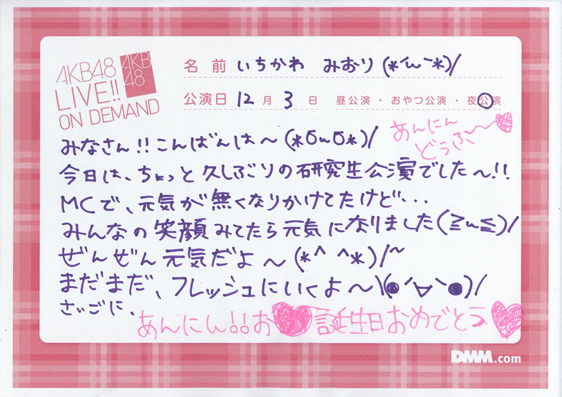 AKB48
LIVE!!
ON DEMAND
AKB
48
名前 いちかわ みおり (*´ｗ｀*)/
公演日 12月 3日 昼公演・おやつ公演・夜公演
あんにん
どうふ～
みなさん!!こんばんは～(*õωõ*)/
今日は、ちょっと久しぶりの研究生公演でした～!!
MCで、元気が無くなりかけてたけど・・・
みんなの笑顔みてたら元気になりました(≧ω≦)/
ぜんぜん元気だよ～(*^ ^*)/~
まだまだ、フレッシュにいくよ～\(●´∀`●)/
さいごに、
あんにん!!お♥誕生日おめでとう♥
DMM.com